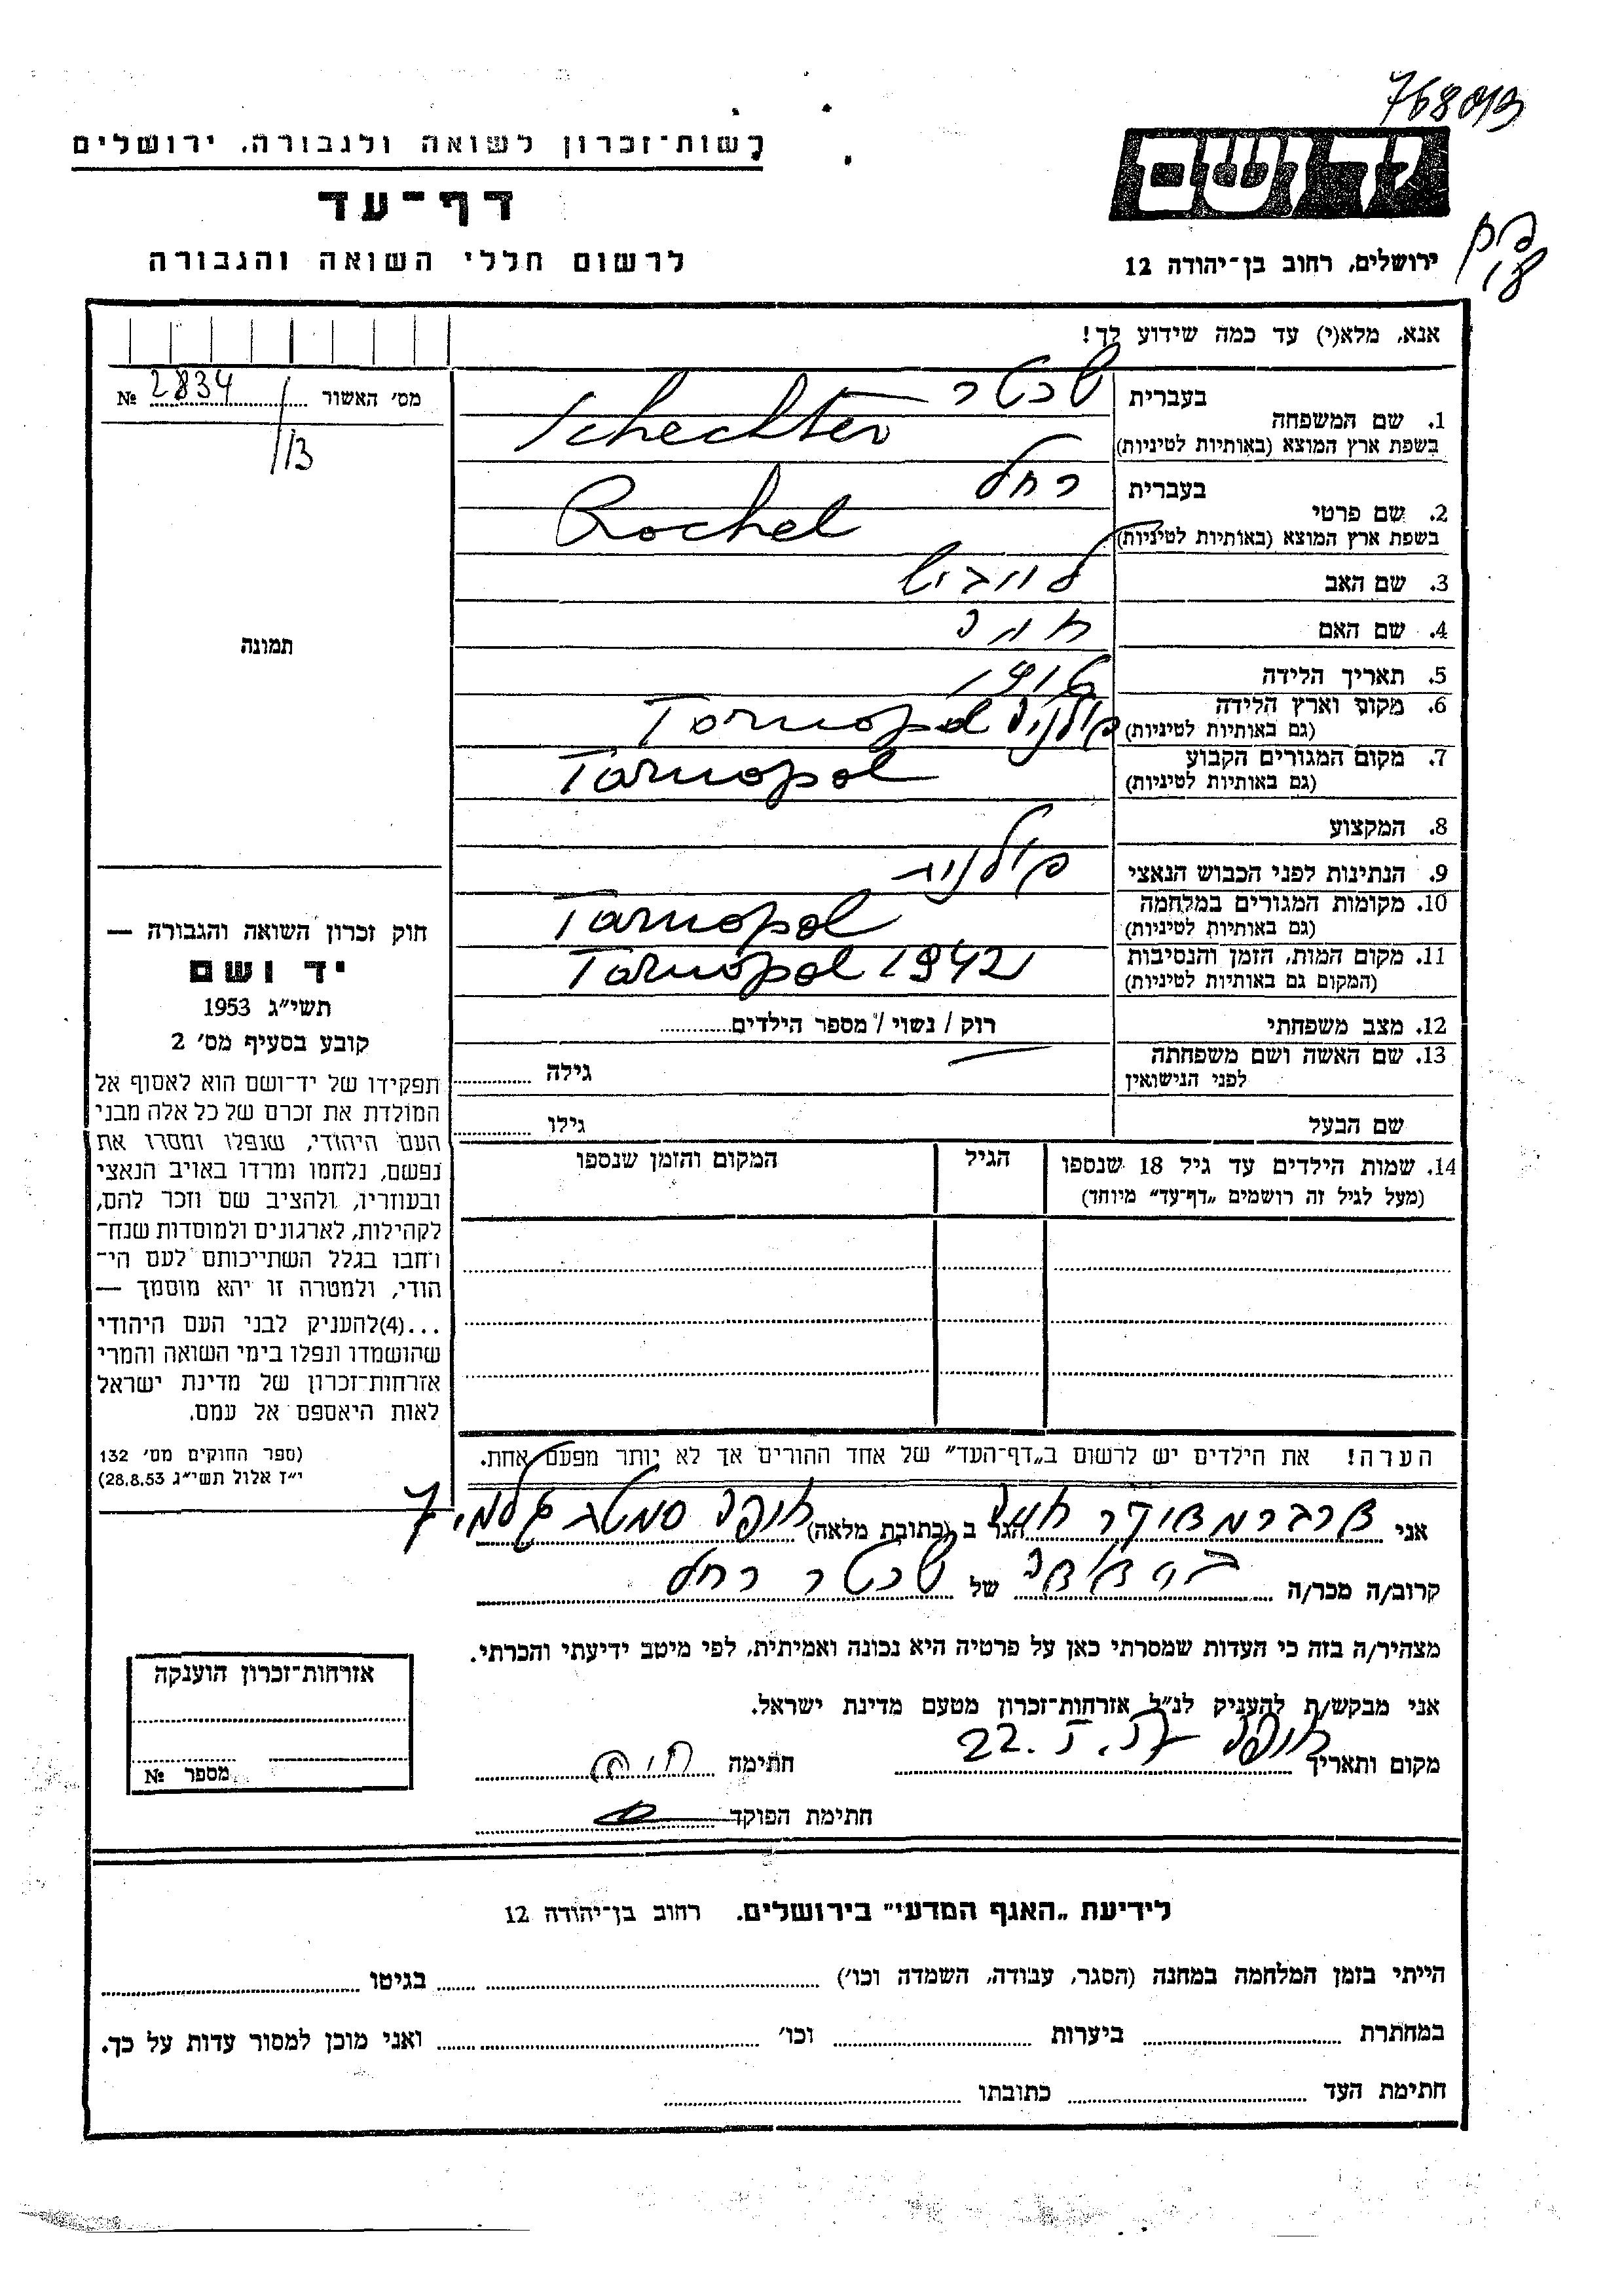 768013
רשות־זכרון לשואה ולגבורה, ירושלים
יד ושם
דף־עד
לרשום חללי השואה והגבורה
ירושלים, רחוב בן־יהודה 12
אנא, מלא(י) עד כמה שידוע לך!
מס׳ האשור № 2834
113
1. שם המשפחה
בעברית שכטר
בשפת ארץ המוצא (באותיות לטיניות) Schechter
2. שם פרטי
בעברית רחל
בשפת ארץ המוצא (באותיות לטיניות) Rochel
3. שם האב לייביש
4. שם האם חוה
5. תאריך הלידה
6. מקום וארץ הלידה (גם באותיות לטיניות) פולניה Tarnopol
7. מקום המגורים הקבוע (גם באותיות לטיניות) Tarnopol
8. המקצוע
9. הנתינות לפני הכבוש הנאצי פולנית
10. מקומות המגורים במלחמה (גם באותיות לטיניות) Tarnopol
11. מקום המות, הזמן והנסיבות (המקום גם באותיות לטיניות) Tarnopol 1942
12. מצב משפחתי רוק / נשוי / מספר הילדים
13. שם האשה ושם משפחתה לפני הנישואין
גילה
שם הבעל
גילו
14. שמות הילדים עד גיל 18 שנספו
(מעל לגיל זה רושמים „דף־עד״ מיוחד)
הגיל
המקום והזמן שנספו
תמונה
חוק זכרון השואה והגבורה —
יד ושם
תשי״ג 1953
קובע בסעיף מס׳ 2
תפקידו של יד־ושם הוא לאסוף אל
המולדת את זכרם של כל אלה מבני
העם היהודי, שנפלו ומסרו את
נפשם, נלחמו ומרדו באויב הנאצי
ובעוזריו, ולהציב שם וזכר להם,
לקהילות, לארגונים ולמוסדות שנח־
רחבו בגלל השתייכותם לעם הי־
הודי, ולמטרה זו יהא מוסמך —
...(4) להעניק לבני העם היהודי
שהושמדו ונפלו בימי השואה והמרי
אזרחות־זכרון של מדינת ישראל
לאות היאספם אל עמם.
(ספר החוקים מס׳ 132
י״ז אלול תשי״ג 28.8.53)
הערה! את הילדים יש לרשום ב„דף־העד״ של אחד ההורים אך לא יותר מפעם אחת.
אני חיים הגר ב (כתובת מלאה) חיפה 7
קרוב/ה מכר/ה של שכטר רחל
מצהיר/ה בזה כי העדות שמסרתי כאן על פרטיה היא נכונה ואמיתית, לפי מיטב ידיעתי והכרתי.
אני מבקש/ת להעניק לנ״ל אזרחות־זכרון מטעם מדינת ישראל.
מקום ותאריך חיפה 22. I. 57 חתימה
חתימת הפוקד
אזרחות־זכרון הוענקה
מספר №
לידיעת „האגף המדעי״ בירושלים. רחוב בן־יהודה 12
הייתי בזמן המלחמה במחנה (הסגר, עבודה, השמדה וכו׳) בגיטו
במחתרת ביערות וכו׳ ואני מוכן למסור עדות על כך.
חתימת העד כתובתו